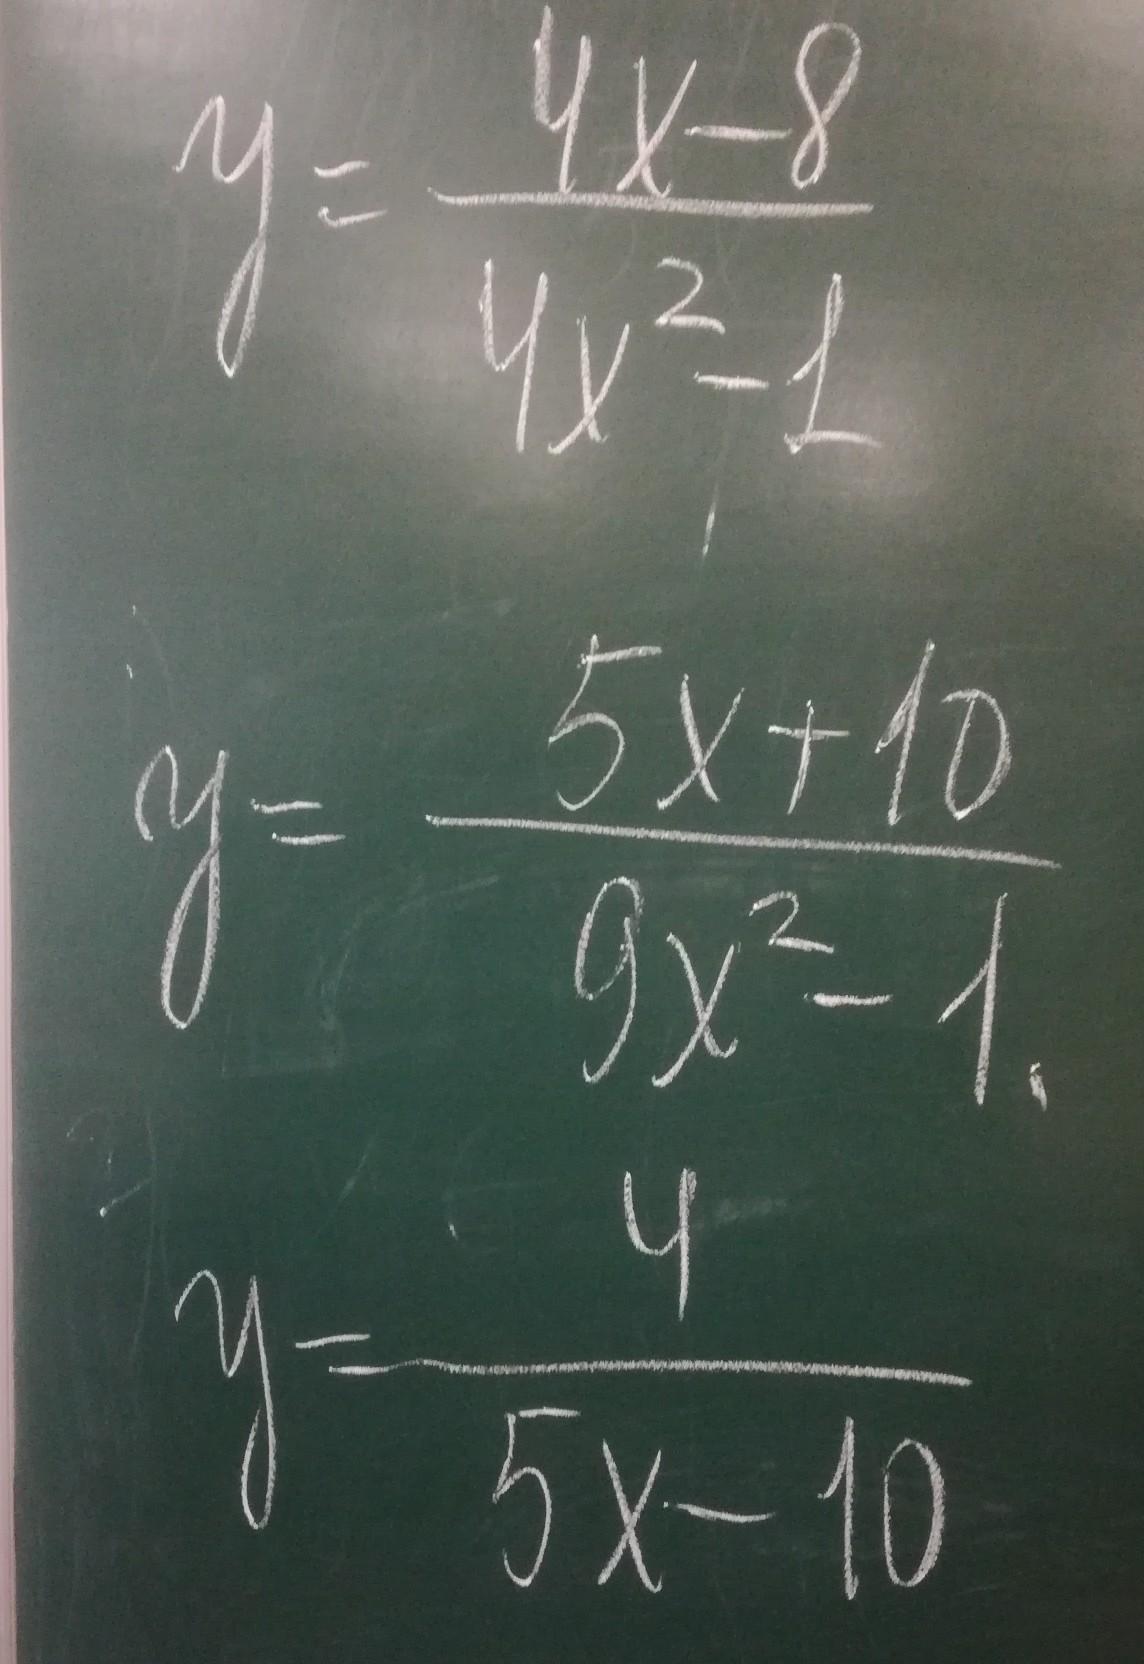 y = (4x - 8)/(4x² - 1)
y = (5x + 10)/(9x² - 1).
y = 4/(5x - 10)